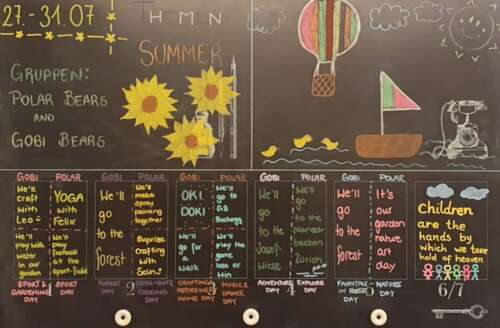 27.-31.07
THEMEN
SUMMER
GRUPPEN:
POLAR BEARS
AND
GOBI BEARS
GOBI POLAR
We'll
craft
with
Leo
We'll
play with
water in
our garden
YOGA
with
Felix
We'll
play
football
at the
sport-field
SPORT &
GARDENING
DAY
1
SPORT
DAY
FOREST POLAR
We'll
go
to the
forest
We'll
make
spray
painting
together
Surprise
crafting
with
Selin
FOREST
DAY
2
COOKING
DAY
GOBI POLAR
OKI
DOKI
We'll
go
for a
walk
We'll
go to
GZ
Bachegg
We'll
play the
game
lose or
win
CRAFTING
HOME DAY
3
MUSIC &
DANCE
DAY
GOBI POLAR
We'll
go
to the
Josef
Wiese
We'll
go
to the
Zürich
ADVENTURE
DAY
4
EXPLORE
DAY
GOBI POLAR
We'll
go
to the
forest
It's
our
garden
nature
art
day
FAIRYTALE
IN FOREST
DAY
5
NATURE
DAY
Children
are the
hands by
which we take
hold of heaven
6/7